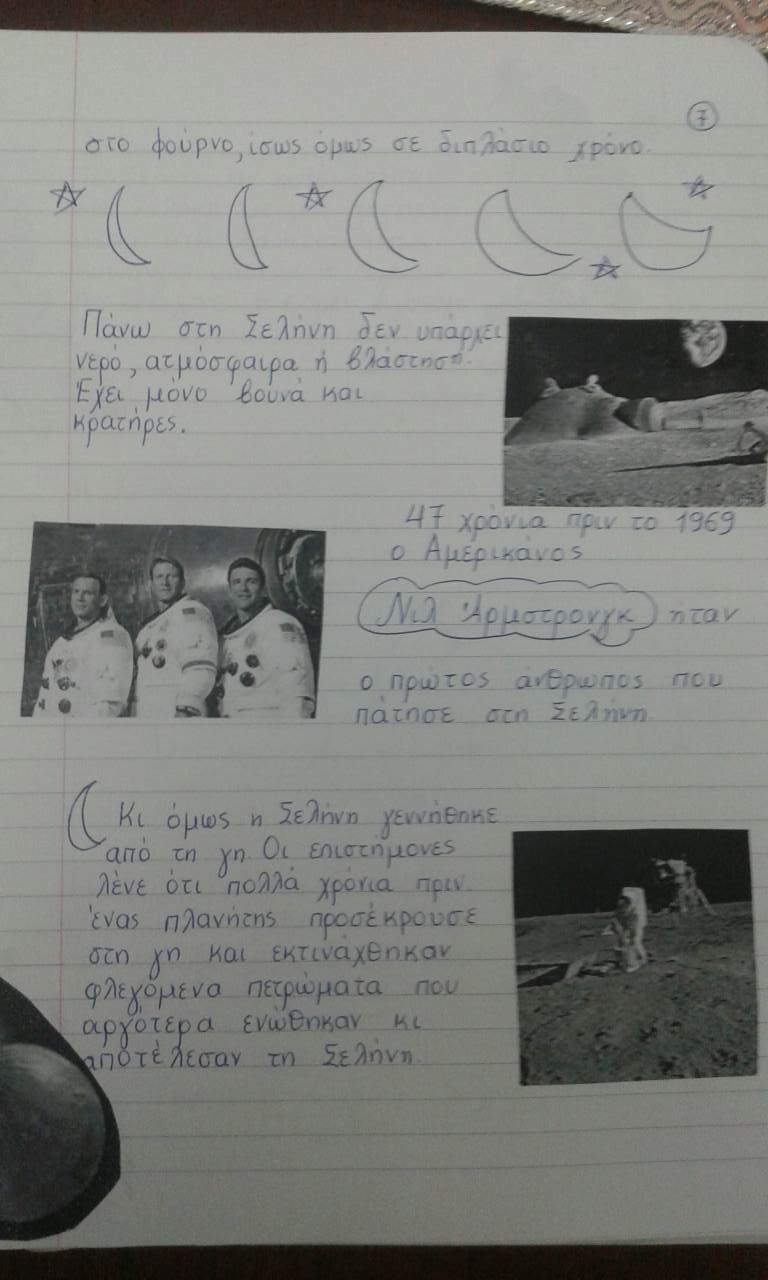 7
στο φούρνο, ίσως όμως σε διπλάσιο χρόνο.
Πάνω στη Σελήνη δεν υπάρχει
νερό, ατμόσφαιρα ή βλάστηση.
Έχει μόνο βουνά και
κρατήρες.
47 χρόνια πριν το 1969
ο Αμερικάνος
Νιλ Άρμστρονγκ ηταν
ο πρώτος άνθρωπος που
πάτησε στη Σελήνη
Κι όμως η Σελήνη γεννήθηκε
από τη γη Οι επιστήμονες
λένε ότι πολλά χρόνια πριν
ένας πλανήτης προσέκρουσε
στη γη και εκτινάχθηκαν
φλεγόμενα πετρώματα που
αργότερα ενώθηκαν κι
αποτέλεσαν τη Σελήνη